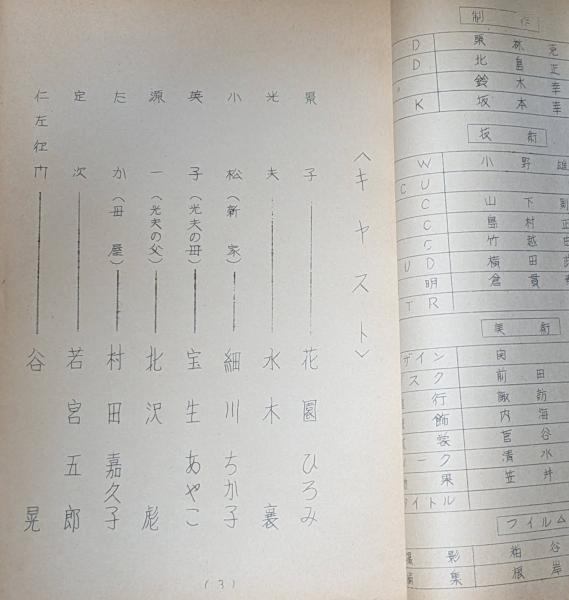 〈キャスト〉
景子 花園ひろみ
光夫 水木襄
小松（新家） 細川ちか子
英子（光夫の母） 宝生あやこ
源一（光夫の父） 北沢彪
たか（母屋） 村田嘉久子
定次 若宮五郎
仁左衛門 谷晃
(3)
制作
D 栗林克
D 北島正
鈴木幸
K 坂本幸
技術
W 小野雄
CU
C 山下
C 島村正
C 竹越
UD 横田
明 倉貫
TR
美術
ザイン 関
スク 前田
行 諏訪
飾 内海
菅谷
ーク 清水
果 笠井
イトル
フィルム
撮影 粕谷
編集 根岸